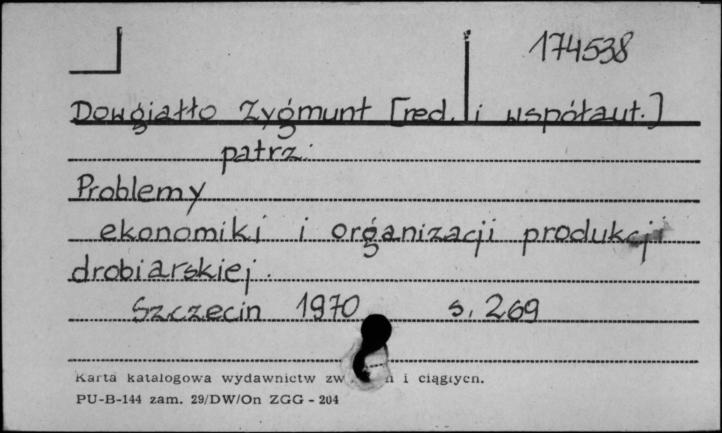 174538
Dowgiałło Zygmunt [red. i współaut.]
patrz:
Problemy
ekonomiki i organizacji produkcji
drobiarskiej.
Szczecin 1970 s. 269
Karta katalogowa wydawnictw i ciągłych.
PU-B-144 zam. 29/DW/On ZGG - 204